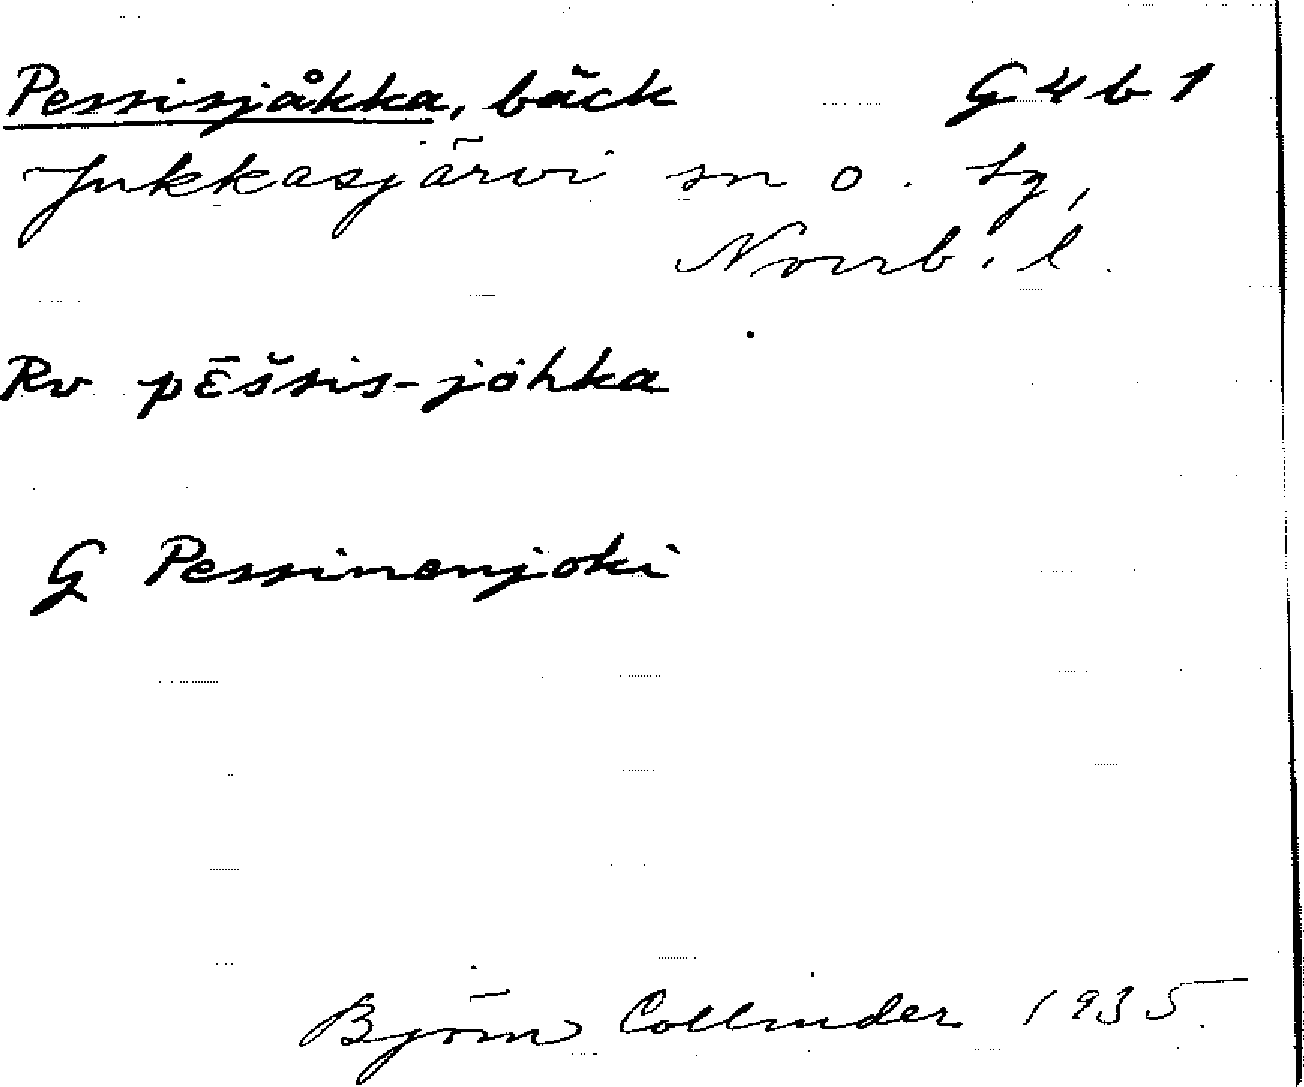 Pessisjåkka, bäck G 4 b 1
Jukkasjärvi sn o. tg,
Norrb. l.
Rv pēšsis-jóhka
G Pessinenjoki
Björn Collinder 1935.